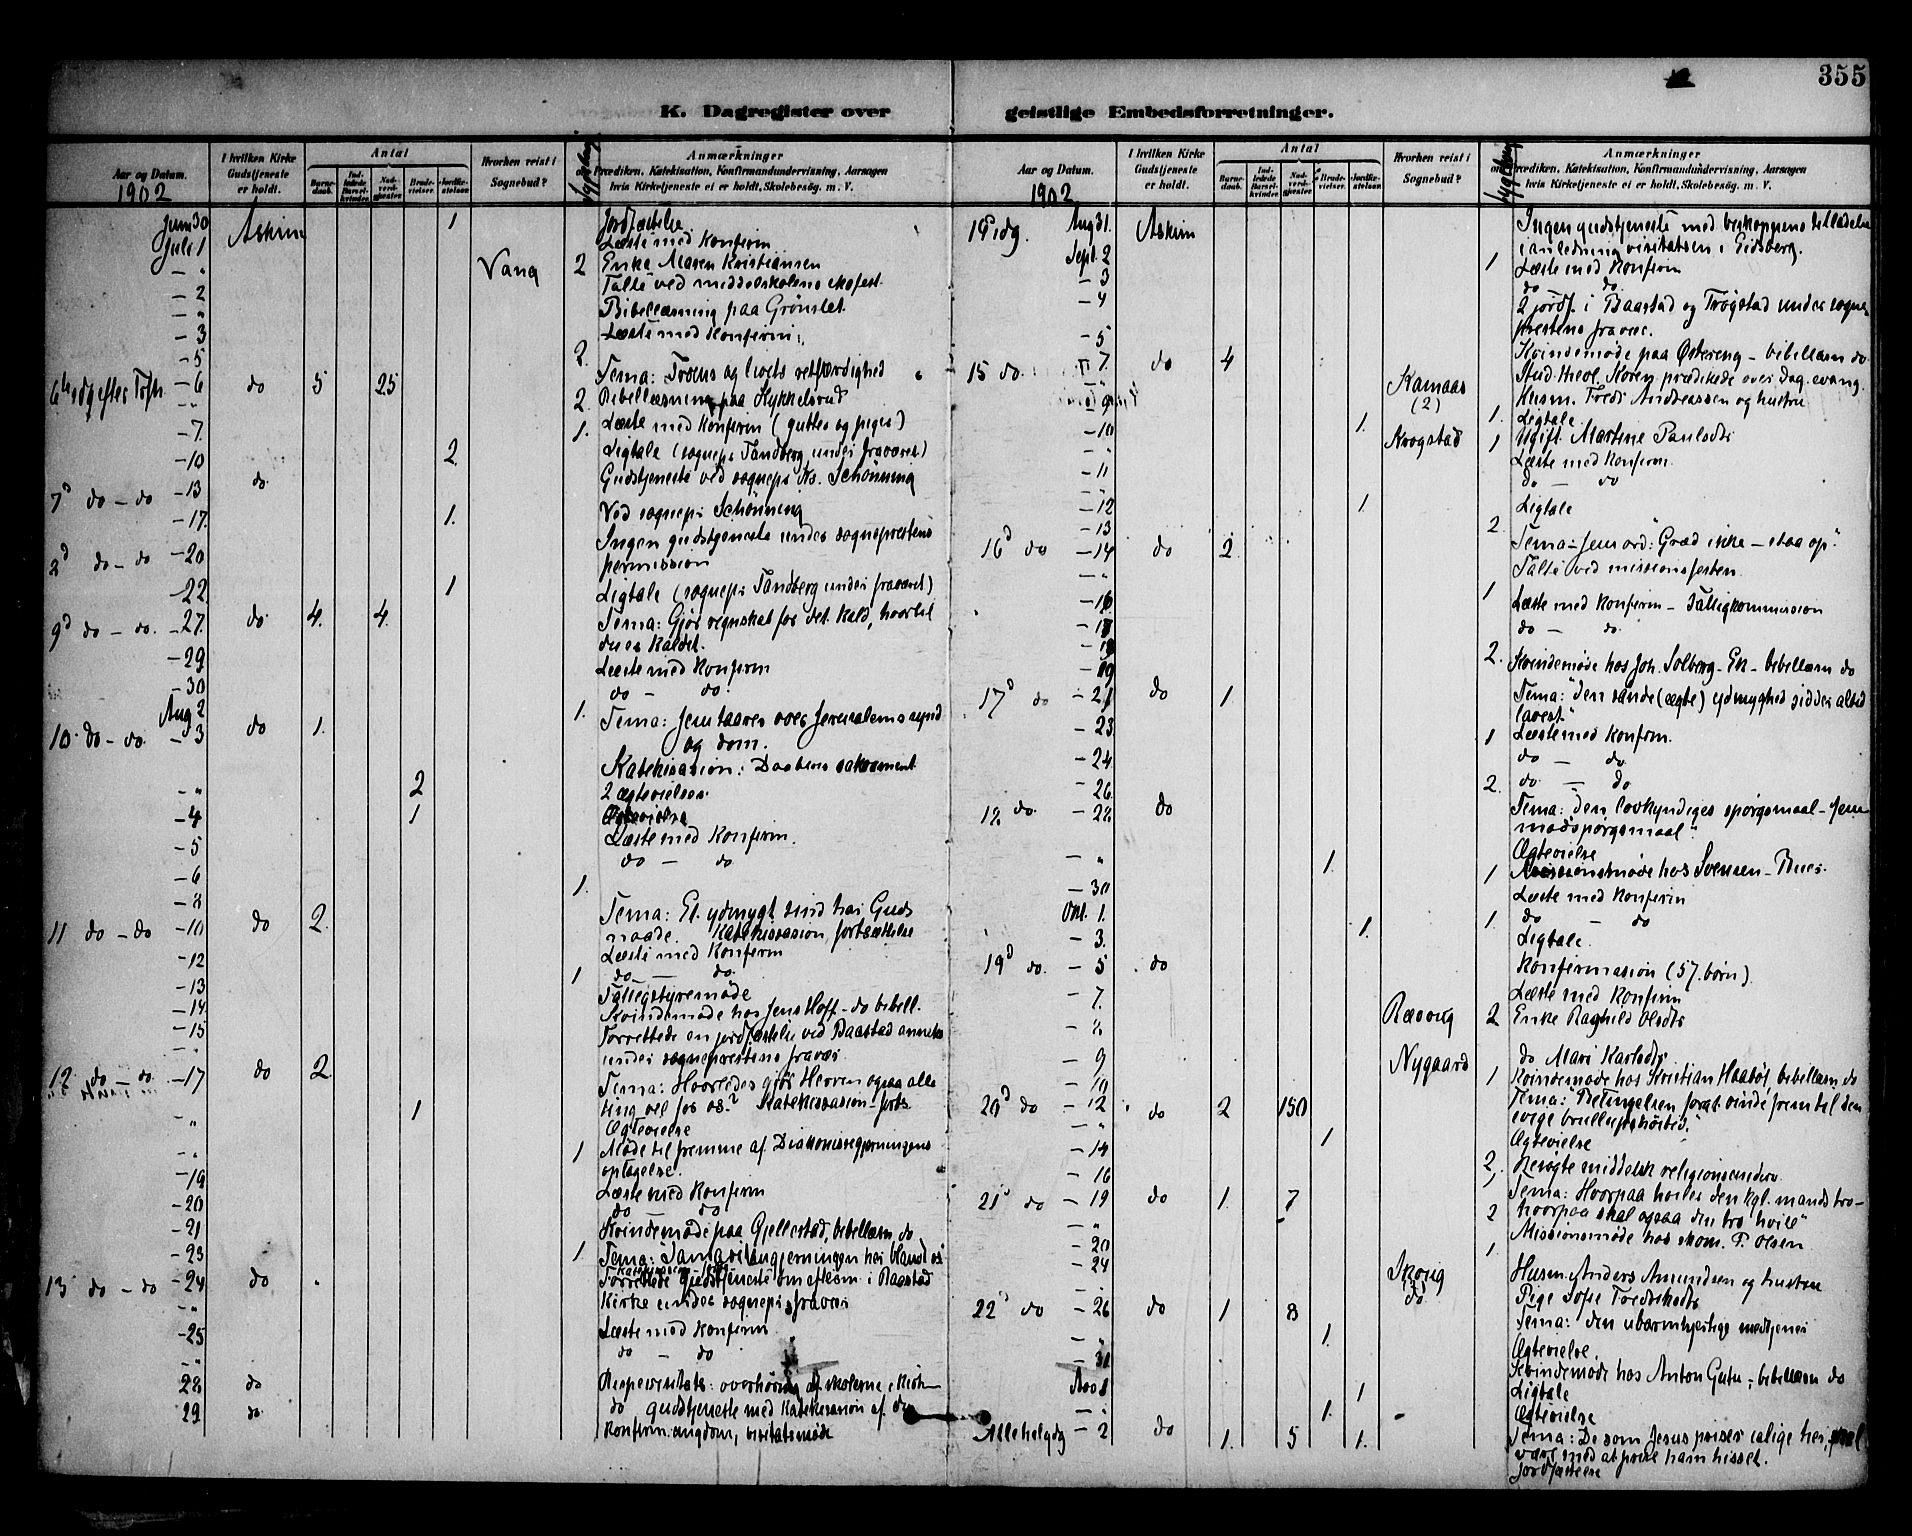 355
K. Dagregister over geistlige Embedsforretninger.
Aar og Datum.
1902
I hvilken Kirke Gudstjeneste er holdt.
Antal
Barnedaab.
Indledede Barselkvinder.
Nadverdgjester
Brudevielser.
Jordfæstelser
Hvorhen reist i Sognebud?
Sygebesøg
Anmærkninger
om Prædiken, Katekisation, Konfirmandundervisning, Aarsagen
hvis Kirketjeneste ei er holdt, Skolebesøg, m. V.
Juni 30 Askim 1 Jordfæstelse
Juli 1 Læste med Konfirm
- " Vang 2 Enke Maren Kristiansen
- 2 Talte ved middelskolens skofest.
- " Bibellæsning paa Grønslet
- 3 Læste med Konfirm:
- 5 2
6te sdg efter Trft. - 6 do 5 25 Tema: Troens og livets retfærdighed
- " 2 Bibellæsning paa Kykkelsrud
- 7 1. Læste med Konfirm (gutter og piger)
- 10 2 Ligtale (sognepr. Tandberg under fraværet)
7d do - do - 13 do Gudstjeneste ved sognepr. Schønning
- 17 1. Ved sognepr. Schønning
do - do - 20 Ingen gudstjeneste under sogneprestens
permission
22 1 Ligtale (sognepr. Tandberg under fraværet)
9d do - do. - 27. do 4. 4. Tema: Gjør regnskab for det kald, hvortil
du er kaldet.
- 29 Læste med Konfirm
- 30 do - do.
Aug 2 1.
10. do - do. - 3 do 1. Tema: Jesu taarer over Jerusalems synd
og dom.
Katekisasion: Daabens sakrament
- " 2 2 Ægtevielser
- 4 1 Ægtevielse
- 5 Læste med Konfirm.
- 6 do - do
- 8 1.
11 do - do - 10 do 2. Tema: Et ydmygt sind har Guds
naade. Katekisasion, fortsættelse
- 12 Læste med Konfirm
- 13 1 do - do.
- 14 Fattigstyremøde
- 15 Kvindemøde hos Jens Hoff - do bibell.
- " Forrettede en jordfæstelse ved Baastad anneks
under sogneprestens fravær.
12. do - do - 17 do 2 Tema: Hvorledes gjør Herren ogsaa alle
ting vel for os? Katekisasion - forts.
- " 1 Ægtevielse
- " 1 Møde til fremme af Diakonissegjerningens
optagelse.
- 19 Læste med Konfirm
- 20 do do
- 21 Kvindemøde paa Gjellestad, bibellæsn. do
- 23 1.
13 do - do - 24 do Tema: Samaritangjerningen her blandt os
- " Forrettede Gudstjeneste om efterm. i Baastad
Kirke under sognepr.s fravær
- 25 Læste med Konfirm
- " do - do
28 do Bispevisitats: overhøring af skolerne i Kirk-
29 do do gudstjeneste med Katekisasion af den
konfirm. ungdom, visitatsmøde
Aar og Datum.
1902
I hvilken Kirke Gudstjeneste er holdt.
Antal
Barnedaab.
Indledede Barselkvinder.
Nadverdgjester
Brudevielser.
Jordfæstelser
Hvorhen reist i Sognebud?
Sygebesøg
Anmærkninger
om Prædiken, Katekisation, Konfirmandundervisning, Aarsagen
hvis Kirketjeneste ei er holdt, Skolebesøg, m. V.
Aug 31. Askim Ingen gudstjeneste med biskoppens tilladelse
i anledning visitatsen i Eidsberg.
Sept. 2 1 Læste med Konfirm
- 3 do do
- 4 2 jordf. i Baastad og Trøgstad under sogne-
prestens fravær.
- 5 Kvindemøde paa Østereng - bibellæsn do
15 do. - 7. do 4 Stud. theol. Koren prædikede over Dag. evang.
Kamaas (2) Husm. Fredr. Andreassen og hustru
- 10 1. 1. Ligtale
- " Krogstad 1 Ugift Martine Paulsdtr
- 11 Læste med Konfirm.
- " do - do
- 12 1 Ligtale
- 13 2
16d do - 14 do 2 Tema: Jesu ord: "Græd ikke - staa op"
- " Talte ved missionsfesten.
- 16 1 Læste med Konfirm - Fattigkommission
do - do.
- 19 2. Kvindemøde hos Joh. Solberg - Ek - bibellæsn do
17d do - 21 do 1 Tema: "den sande (ægte) ydmyghed sidder altid
lavest"
- 23 1 Læste med Konfirm.
- 24 do - do
- 26 2. do - do
18. do. - 28 do Tema: den lovkyndiges spørgsmaal - Jesu
modspørgsmaal"
- " 1. Ægtevielse
1 Missionsmøde hos Svensen - Buer.
- 30 Læste med Konfirm
Okt. 1. 1. do - do
- 3. 1. Ligtale.
19d do. - 5 do Konfirmasion (57 børn).
- 7. Læste med Konfirm
- 8 Ræsvig 2 Enke Raghild Olsdtr
- 9 Nygaard do Mari Karlsdtr
- 10 1 Kvindemøde hos Kristian Haabøl, bibellæsn do
20d do - 12 do 2 150 Tema: "Betingelsen forat vinde frem til den
evige bryllupshøitid."
- " 1 Ægtevielse
- 14 2. Besøgte middelsk. religionsunderv.
- 16
21d do - 19 do 1. 7 Tema: Hvorpaa hviler den kgl. mands tro -
hvorpaa skal ogsaa din tro hvile"
- " 2 Missionsmøde hos skom. P. Olsen
- 20 1.
- 24 Skovig Husm. Anders Amundsen og hustru
- " do Pige Sofie Fredriksdtr
22d do - 26 do 1 8 Tema: den ubarmhjertige medtjener
- " 1. Ægtevielse.
- 31 Kvindemøde hos Anton Gutu, bibellæsn do
Nov 1 1 Ligtale
- " 1. Ægtevielse
Allehelgdg - 2 do 1. 5 1. Tema: De som Jesus priser salige her,
være med at prise ham hisset.
Jordfæstelse